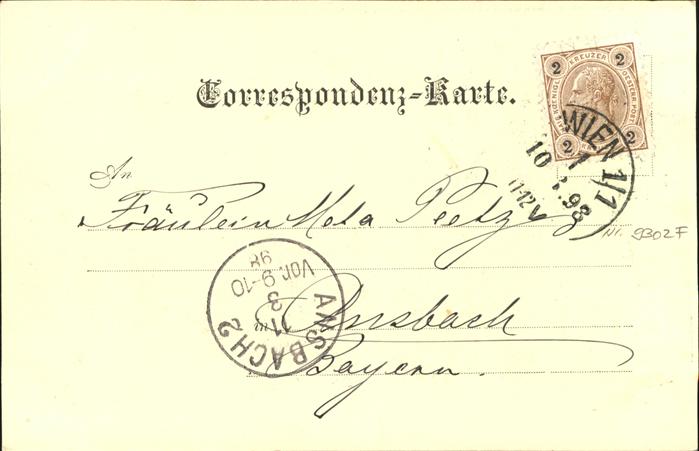 Correspondenz-Karte.
2 KREUZER 2
2 2
WIEN 1/1
1
10 3.98
11-12V
An
Fräulein Meta Peetz
Nr. 9302F
ANSBACH 2
11
3
Vor. 9-10
98
in Ansbach
Bayern.